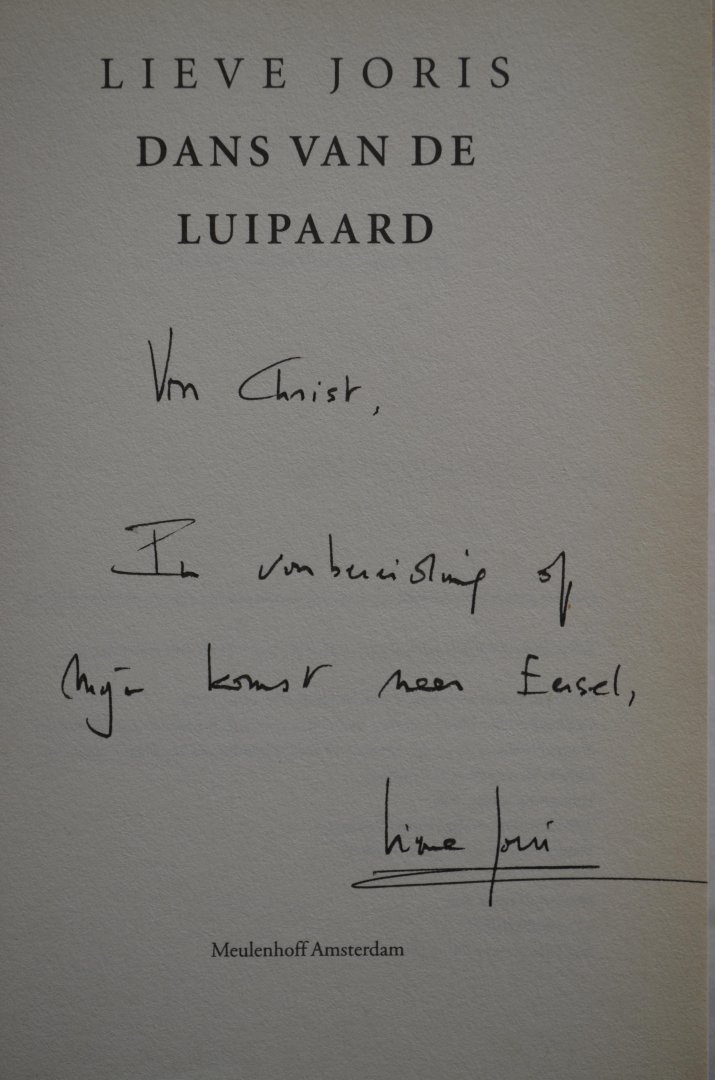 LIEVE JORIS
DANS VAN DE
LUIPAARD
Voor Christ,
In voorbereiding op
mijn komst naar Eersel,
Lieve Joris
Meulenhoff Amsterdam